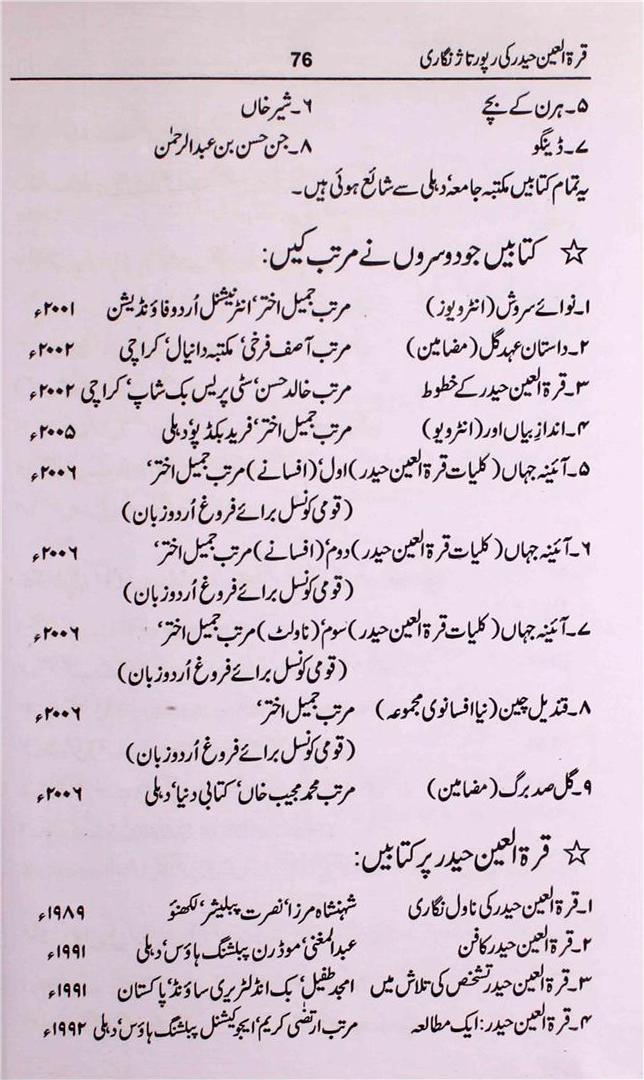 قرۃ العین حیدر کی رپورتاژ نگاری 76
۵۔ ہرن کے بچے ۶۔ شیر خاں
۷۔ ڈینگو ۸۔ جن حسن بن عبدالرحمٰن
یہ تمام کتابیں مکتبہ جامعہ، دہلی سے شائع ہوئی ہیں۔
☆ کتابیں جو دوسروں نے مرتب کیں:
۱۔ نوائے سروش (انٹرویوز) مرتب جمیل اختر، انٹرنیشنل اُردو فاؤنڈیشن ۲۰۰۱ء
۲۔ داستان عہد گل (مضامین) مرتب آصف فرخی، مکتبہ دانیال، کراچی ۲۰۰۲ء
۳۔ قرۃ العین حیدر کے خطوط مرتب خالد حسن، سٹی پریس بک شاپ، کراچی ۲۰۰۲ء
۴۔ اندازِ بیاں اور (انٹرویو) مرتب جمیل اختر، فرید بکڈپو، دہلی ۲۰۰۵ء
۵۔ آئینہ جہاں (کلیات قرۃ العین حیدر) اول، (افسانے) مرتب جمیل اختر، ۲۰۰۶ء
(قومی کونسل برائے فروغ اُردو زبان)
۶۔ آئینہ جہاں (کلیات قرۃ العین حیدر) دوم، (افسانے) مرتب جمیل اختر، ۲۰۰۶ء
(قومی کونسل برائے فروغ اُردو زبان)
۷۔ آئینہ جہاں (کلیات قرۃ العین حیدر) سوم، (ناولٹ) مرتب جمیل اختر، ۲۰۰۶ء
(قومی کونسل برائے فروغ اُردو زبان)
۸۔ قندیل چین (نیا افسانوی مجموعہ) مرتب جمیل اختر، ۲۰۰۶ء
(قومی کونسل برائے فروغ اُردو زبان)
۹۔ گل صد برگ (مضامین) مرتب محمد مجیب خاں، کتابی دنیا، دہلی ۲۰۰۶ء
☆ قرۃ العین حیدر پر کتابیں:
۱۔ قرۃ العین حیدر کی ناول نگاری شہنشاہ مرزا، نصرت پبلیشر، لکھنؤ ۱۹۸۹ء
۲۔ قرۃ العین حیدر کا فن عبدالمغنی، موڈرن پبلشنگ ہاؤس، دہلی ۱۹۹۱ء
۳۔ قرۃ العین حیدر تشخص کی تلاش میں امجد طفیل، بک انڈ لٹریری ساؤنڈ، پاکستان ۱۹۹۱ء
۴۔ قرۃ العین حیدر: ایک مطالعہ مرتب ارتضٰی کریم، ایجوکیشنل پبلشنگ ہاؤس، دہلی ۱۹۹۲ء